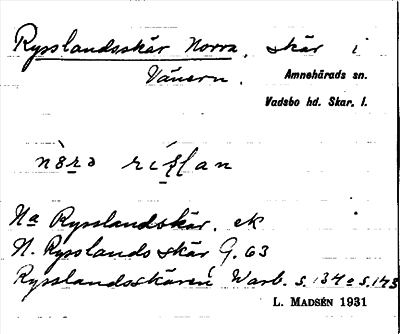 Rysslandsskär Norra, skär i
Vänern.
Amnehärads sn.
Vadsbo hd. Skar. l.
Na Rysslandskär. ek
N. Rysslands skär G. 63
Rysslandsskären Warb. s. 134 o s. 143
L. MADSÉN 1931